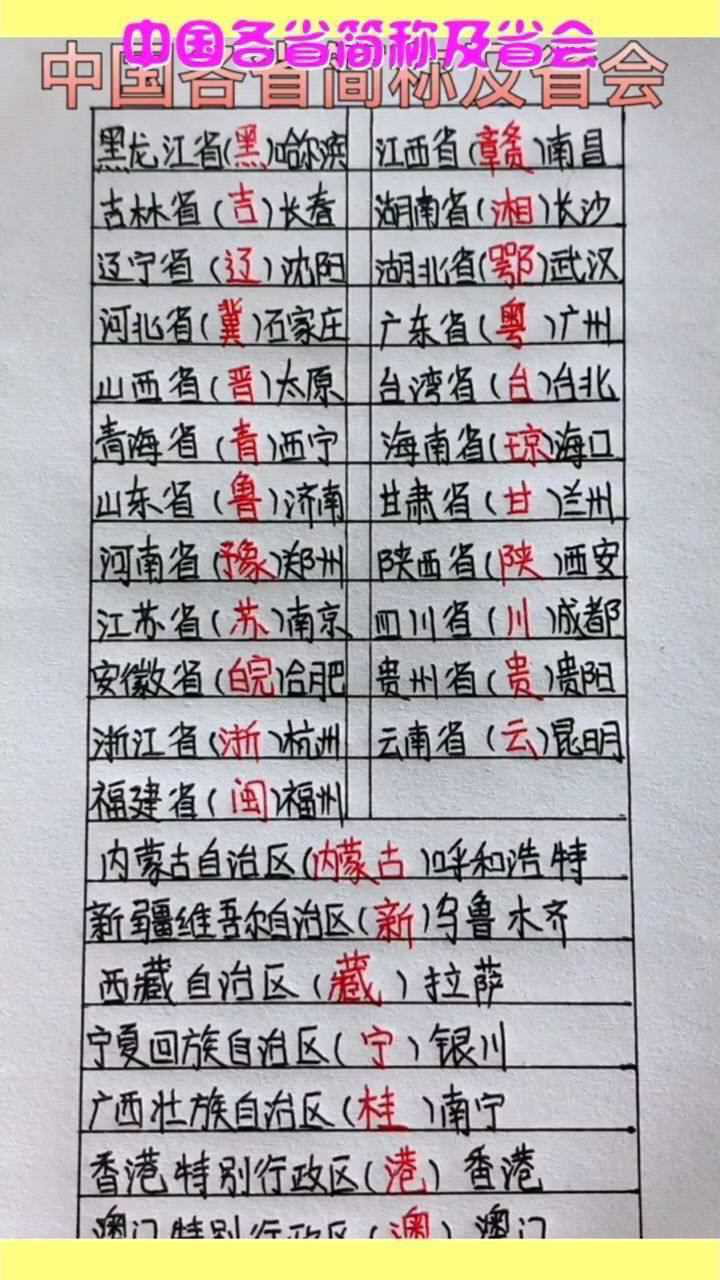 中国各省简称及省会
中国各省简称及省会
黑龙江省(黑)哈尔滨 江西省(赣)南昌
吉林省(吉)长春 湖南省(湘)长沙
辽宁省(辽)沈阳 湖北省(鄂)武汉
河北省(冀)石家庄 广东省(粤)广州
山西省(晋)太原 台湾省(台)台北
青海省(青)西宁 海南省(琼)海口
山东省(鲁)济南 甘肃省(甘)兰州
河南省(豫)郑州 陕西省(陕)西安
江苏省(苏)南京 四川省(川)成都
安徽省(皖)合肥 贵州省(贵)贵阳
浙江省(浙)杭州 云南省(云)昆明
福建省(闽)福州
内蒙古自治区(内蒙古)呼和浩特
新疆维吾尔自治区(新)乌鲁木齐
西藏自治区(藏)拉萨
宁夏回族自治区(宁)银川
广西壮族自治区(桂)南宁
香港特别行政区(港)香港
澳门特别行政区(澳)澳门